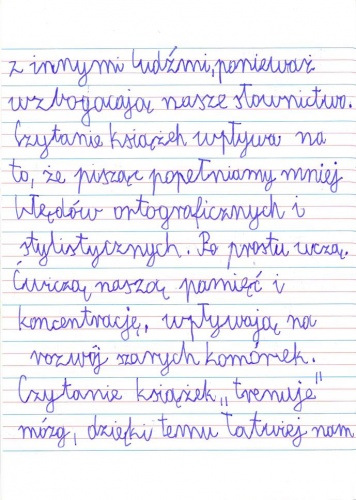 z innymi ludźmi, ponieważ
wzbogacają nasze słownictwo.
Czytanie książek wpływa na
to, że pisząc popełniamy mniej
błędów ortograficznych i
stylistycznych. Po prostu uczą.
Ćwiczą naszą pamięć i
koncentrację, wpływają na
rozwój szarych komórek.
Czytanie książek „trenuje"
mózg, dzięki temu łatwiej nam